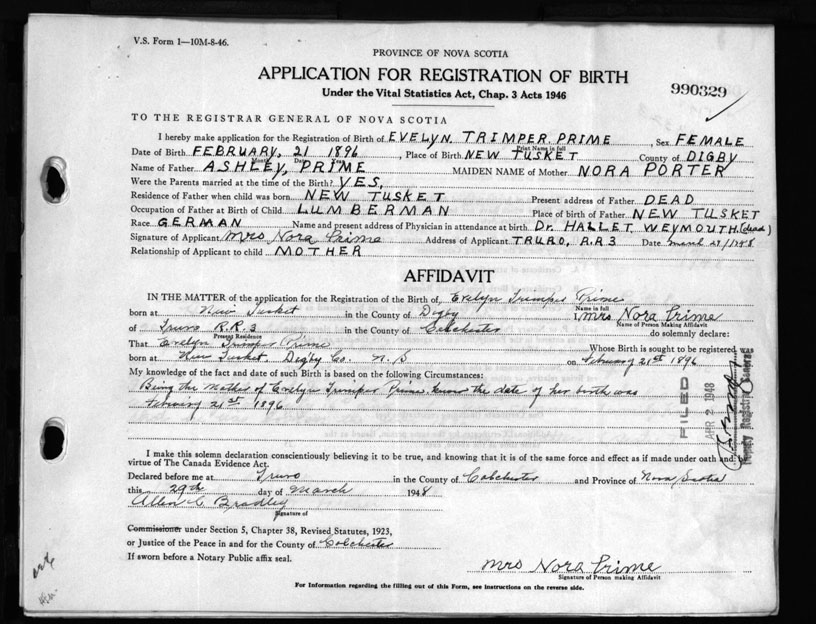 V.S. Form 1—10M-8-46.
PROVINCE OF NOVA SCOTIA
APPLICATION FOR REGISTRATION OF BIRTH
Under the Vital Statistics Act, Chap. 3 Acts 1946
990329
TO THE REGISTRAR GENERAL OF NOVA SCOTIA
I hereby make application for the Registration of Birth of EVELYN. TRIMPER. PRIME, Sex FEMALE
Print Name in full
Date of Birth FEBRUARY, 21 1896, Place of Birth NEW TUSKET County of DIGBY
Month Date Year
Name of Father ASHLEY, PRIME MAIDEN NAME of Mother NORA PORTER
Were the Parents married at the time of the Birth? YES,
Residence of Father when child was born NEW TUSKET Present address of Father DEAD
Occupation of Father at Birth of Child LUMBERMAN Place of birth of Father NEW TUSKET
Race GERMAN Name and present address of Physician in attendance at birth Dr. HALLET WEYMOUTH. (dead)
Signature of Applicant Mrs Nora Prime Address of Applicant TRURO, R.R 3 Date March 29/1948
Relationship of Applicant to child MOTHER
AFFIDAVIT
IN THE MATTER of the application for the Registration of Birth of, Evelyn Trimper Prime
Name in full
born at New Tusket in the County of Digby I, Mrs Nora Prime
Name of Person Making Affidavit
of Truro R.R. 3 in the County of Colchester do solemnly declare:
Present Residence
That Evelyn Trimper Prime Whose Birth is sought to be registered
born at New Tusket Digby Co. N. S on February 21st 1896
My knowledge of the fact and date of such Birth is based on the following Circumstances:
Being the Mother of Evelyn Trimper Prime. know the date of her birth was
February 21st 1896
FILED
APR 2 1948
Deputy Registrar General
I make this solemn declaration conscientiously believing it to be true, and knowing that it is of the same force and effect as if made under oath and by
virtue of The Canada Evidence Act.
Declared before me at Truro in the County of Colchester and Province of Nova Scotia
this 29th day of March 1948
Allen C Bradley
Signature of
Commissioner under Section 5, Chapter 38, Revised Statutes, 1923,
or Justice of the Peace in and for the County of Colchester
If sworn before a Notary Public affix seal.
Mrs Nora Prime
Signature of Person making Affidavit
For Information regarding the filling out of this Form, see instructions on the reverse side.